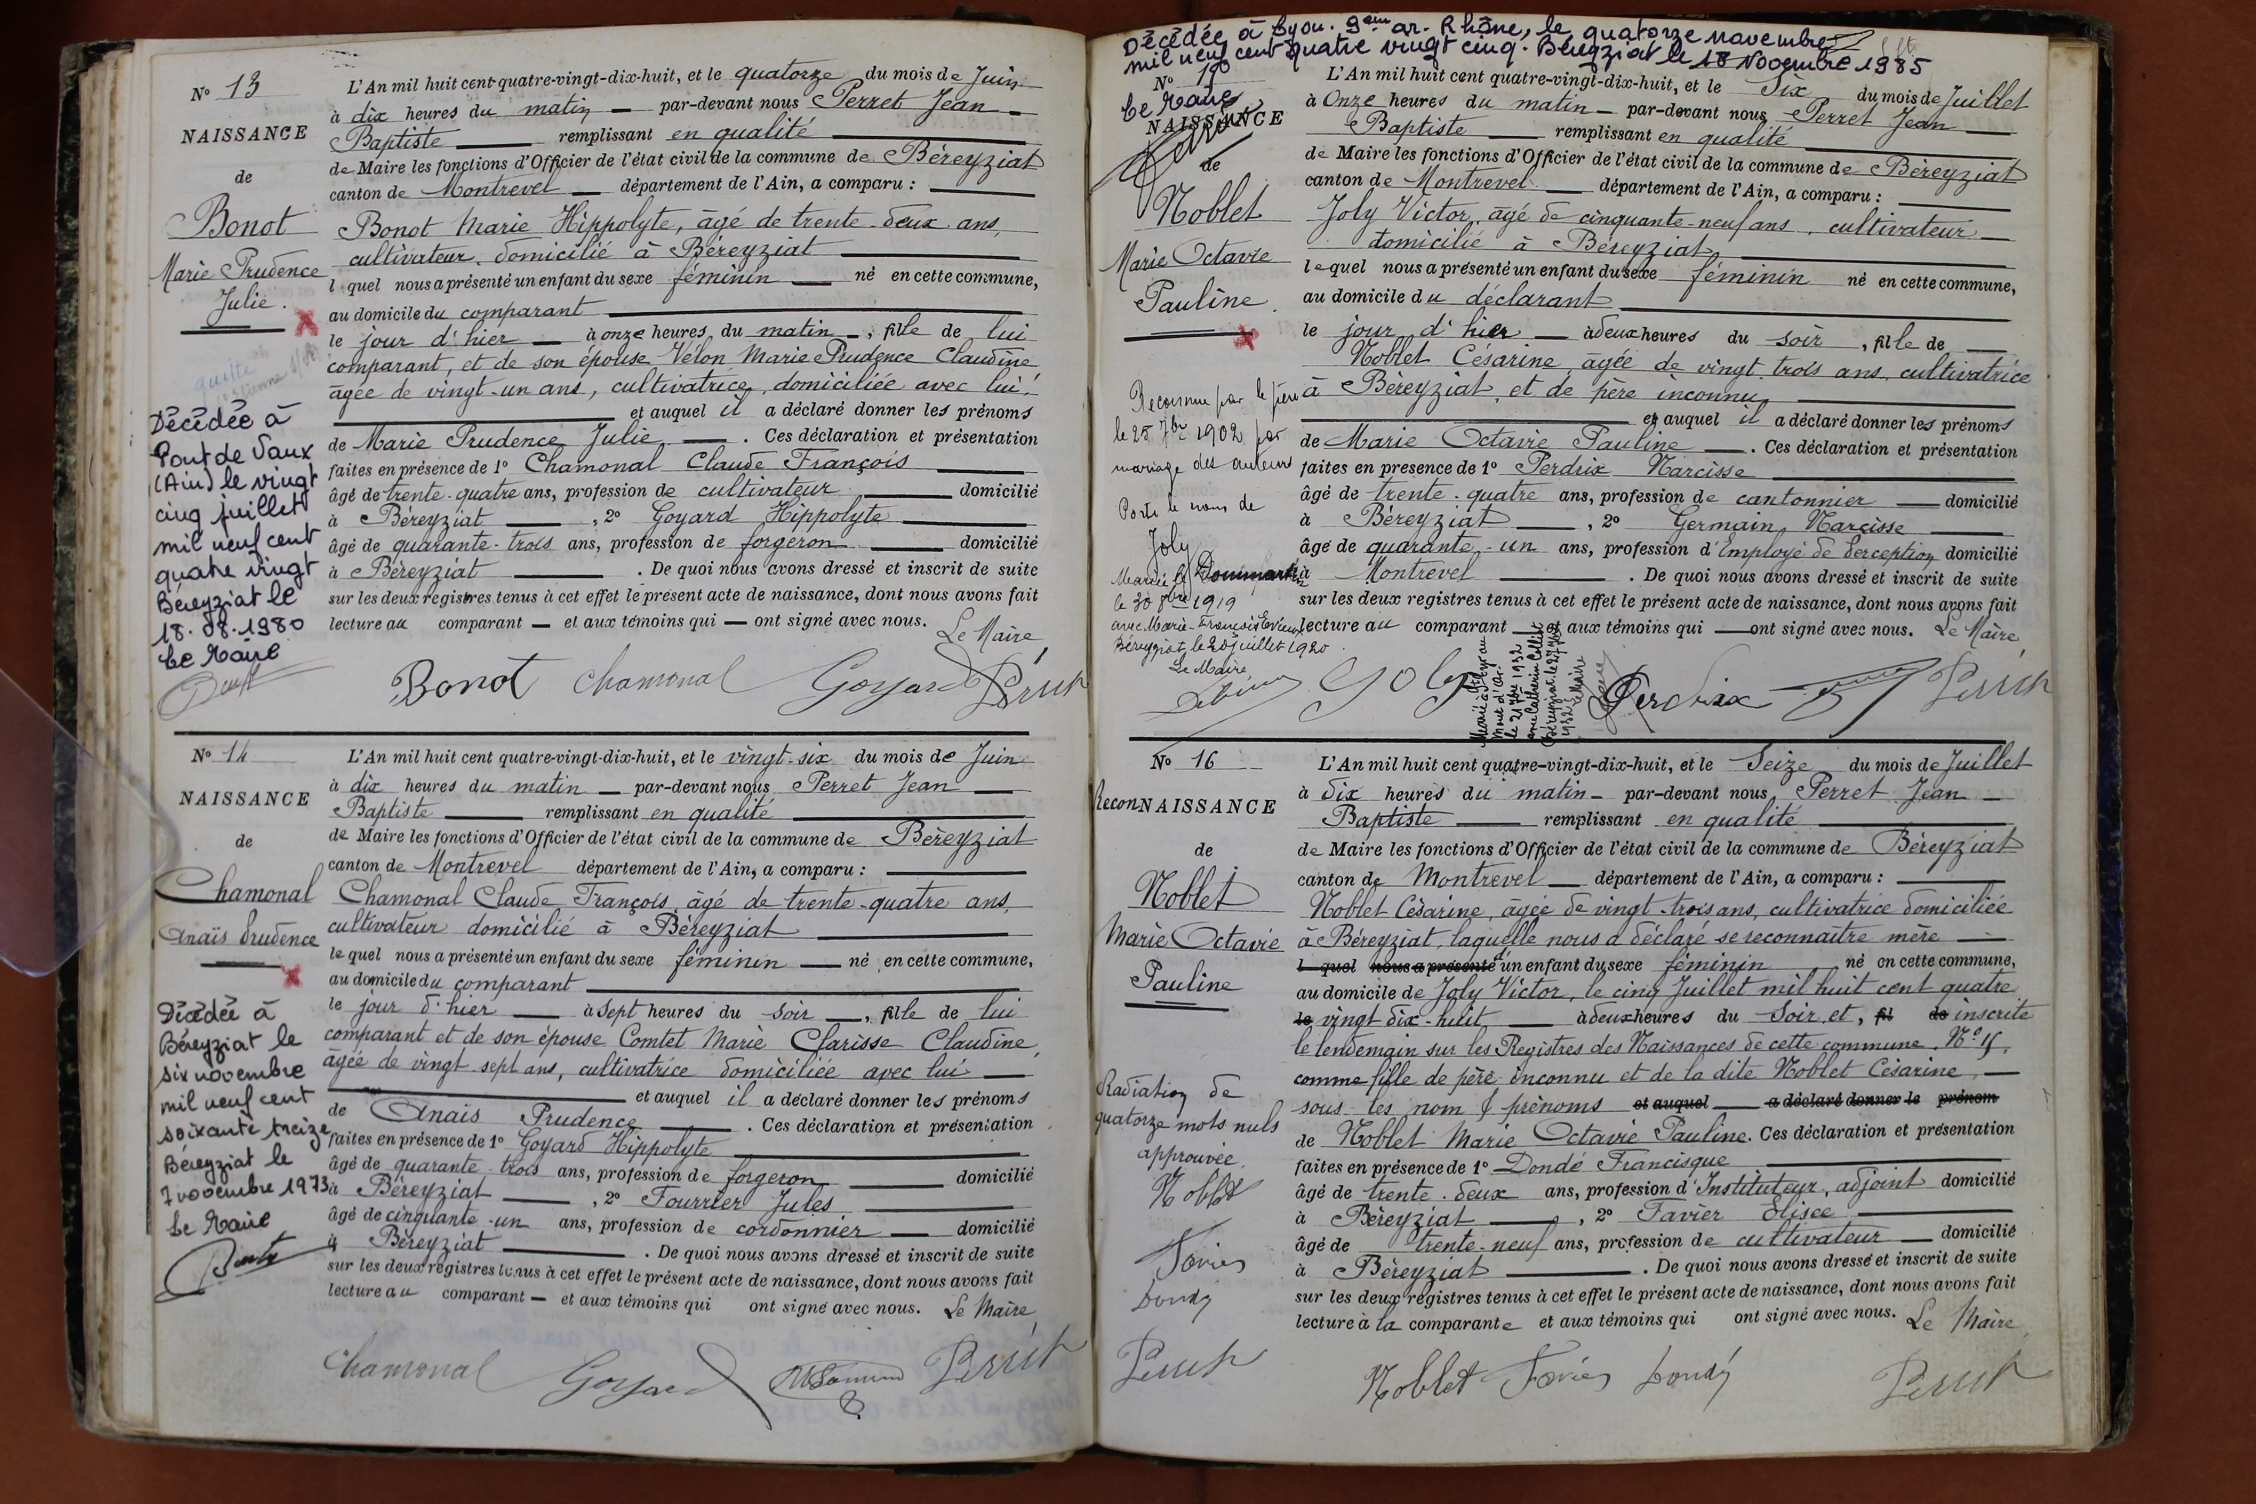 N° 13
L'An mil huit cent quatre-vingt-dix-huit, et le quatorze du mois de Juin
à dix heures du matin — par-devant nous Perret Jean
NAISSANCE
Baptiste — remplissant en qualité
de Maire les fonctions d'Officier de l'état civil de la commune de Béreyziat
de
canton de Montrevel — département de l'Ain, a comparu :
Bonot
Bonot Marie Hippolyte, âgé de trente-deux ans,
cultivateur, domicilié à Béreyziat
Marie Prudence
l quel nous a présenté un enfant du sexe féminin — né en cette commune,
Julie.
au domicile du comparant
le jour d'hier — à onze heures du matin —, fille de lui
comparant, et de son épouse Vélon Marie Prudence Claudine,
âgée de vingt-un ans, cultivatrice, domiciliée avec lui,
et auquel il a déclaré donner les prénoms
de Marie Prudence Julie — . Ces déclaration et présentation
faites en présence de 1° Chamonal Claude François
âgé de trente-quatre ans, profession de cultivateur — domicilié
à Béreyziat — , 2° Goyard Hippolyte
âgé de quarante-trois ans, profession de forgeron — domicilié
à Béreyziat — . De quoi nous avons dressé et inscrit de suite
sur les deux registres tenus à cet effet le présent acte de naissance, dont nous avons fait
lecture au comparant — et aux témoins qui — ont signé avec nous. Le Maire,
Décédée à
Pont de Vaux
(Ain) le vingt
cinq juillet
mil neuf cent
quatre vingt
Béreyziat le
18.08.1980
Le Maire
Bonot Chamonal Goyard Perret
N° 14
L'An mil huit cent quatre-vingt-dix-huit, et le vingt-six du mois de Juin
à dix heures du matin — par-devant nous Perret Jean
NAISSANCE
Baptiste — remplissant en qualité
de
de Maire les fonctions d'Officier de l'état civil de la commune de Béreyziat
canton de Montrevel département de l'Ain, a comparu :
Chamonal
Chamonal Claude François, âgé de trente-quatre ans,
cultivateur domicilié à Béreyziat
Anaïs Prudence
le quel nous a présenté un enfant du sexe féminin — né en cette commune,
au domicile du comparant
le jour d'hier — à sept heures du soir —, fille de lui
comparant et de son épouse Comtet Marie Clarisse Claudine,
âgée de vingt sept ans, cultivatrice domiciliée avec lui —
et auquel il a déclaré donner les prénoms
de Anaïs Prudence — . Ces déclaration et présentation
faites en présence de 1° Goyard Hippolyte
âgé de quarante-trois ans, profession de forgeron — domicilié
à Béreyziat — , 2° Fourrier Jules
âgé de cinquante-un ans, profession de cordonnier — domicilié
à Béreyziat — . De quoi nous avons dressé et inscrit de suite
sur les deux registres tenus à cet effet le présent acte de naissance, dont nous avons fait
lecture au comparant — et aux témoins qui ont signé avec nous. Le Maire,
Décédée à
Béreyziat le
six novembre
mil neuf cent
soixante treize
Béreyziat le
7 novembre 1973
Le Maire
Chamonal Goyard Perret
Décédée à Lyon. 9ème ar. Rhône, le quatorze novembre
mil neuf cent quatre vingt cinq. Béreyziat le 18 Novembre 1985
Le Maire
N°
L'An mil huit cent quatre-vingt-dix-huit, et le Six du mois de Juillet
à Onze heures du matin — par-devant nous Perret Jean —
NAISSANCE
Baptiste — remplissant en qualité
de
de Maire les fonctions d'Officier de l'état civil de la commune de Béreyziat
canton de Montrevel — département de l'Ain, a comparu :
Noblet
Joly Victor, âgé de cinquante-neuf ans, cultivateur —
domicilié à Béreyziat
Marie Octavie
lequel nous a présenté un enfant du sexe féminin né en cette commune,
Pauline
au domicile du déclarant
le jour d'hier — à deux heures du soir , fille de —
Noblet Césarine, âgée de vingt-trois ans, cultivatrice
à Béreyziat, et de père inconnu
et auquel il a déclaré donner les prénoms
de Marie Octavie Pauline — . Ces déclaration et présentation
faites en présence de 1° Perdrix Narcisse
âgé de trente-quatre ans, profession de cantonnier — domicilié
à Béreyziat — , 2° Germain Narcisse —
âgé de quarante-un ans, profession d'Employé de perception domicilié
à Montrevel — . De quoi nous avons dressé et inscrit de suite
sur les deux registres tenus à cet effet le présent acte de naissance, dont nous avons fait
lecture au comparant — et aux témoins qui — ont signé avec nous. Le Maire,
Reconnue par le père
le 25 7bre 1902 par
mariage des auteurs
Porte le nom de
Joly
Mariée à Dommartin
le 30 8bre 1919
avec Marie-François
Béreyziat, le 20 juillet 1920
Le Maire
le 21 7bre 1932
Joly Perdrix Perret
N° 16
L'An mil huit cent quatre-vingt-dix-huit, et le Seize du mois de Juillet
à dix heures du matin — par-devant nous Perret Jean —
ReconNAISSANCE
Baptiste — remplissant en qualité
de
de Maire les fonctions d'Officier de l'état civil de la commune de Béreyziat
canton de Montrevel — département de l'Ain, a comparu :
Noblet
Noblet Césarine, âgée de vingt-trois ans, cultivatrice domiciliée
Marie Octavie
à Béreyziat, laquelle nous a déclaré se reconnaître mère —
l quel nous a présenté d'un enfant du sexe féminin né en cette commune,
Pauline
au domicile de Joly Victor, le cinq Juillet mil huit cent quatre
le vingt dix-huit — à deux heures du Soir et, fil de inscrite
le lendemain sur les Registres des Naissances de cette commune, N° 15,
comme fille de père inconnu et de la dite Noblet Césarine, —
sous les nom & prénoms et auquel — a déclaré donner le prénom
de Noblet Marie Octavie Pauline. Ces déclaration et présentation
faites en présence de 1° Dondé Francisque
âgé de trente-deux ans, profession d'Instituteur, adjoint domicilié
à Béreyziat — , 2° Favier Elisée
âgé de trente-neuf ans, profession de cultivateur — domicilié
à Béreyziat — . De quoi nous avons dressé et inscrit de suite
sur les deux registres tenus à cet effet le présent acte de naissance, dont nous avons fait
lecture à la comparante et aux témoins qui ont signé avec nous. Le Maire,
Radiation de
quatorze mots nuls
approuvée.
Noblet
Favier
Dondé
Perret
Noblet Favier Dondé Perret